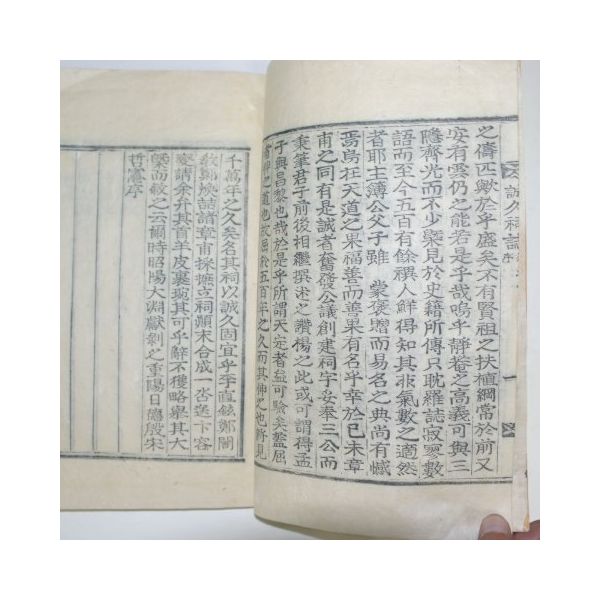 之儔匹歟於乎盛矣不有賢祖之扶植綱常於前又
安有雲仍之能若是乎哉嗚乎靜菴之高義可與三
隱齊光而不少槩見於史籍所傳只耽羅誌寂寥數
語而至今五百有餘禩人鮮得知其非氣數之適然
者耶主簿公父子雖 蒙褒贈而易名之典尚有憾
焉烏在天道之果福善而善果有名乎幸於己未章
甫之同有是誠者奮發公議創建祠宇妥奉三公而
秉筆君子前後相繼撰述之讚揚之此或可謂得孟
子與昌黎也哉於是乎所謂天定者益可驗矣盖屈
者伸之道也故屈於五百年之久而其伸之也將見
千萬年之久矣名其祠以誠久固宜乎李直鉉鄭誾
敎鄭煥喆諸章甫採摭立祠顛末合成一沓逸卞容
夔請余弁其首羊皮裹琬其可乎辭不獲略舉其大
槩而敘之云爾時昭陽大淵獻剝之重陽日德殷宋
哲憲序
誠久祠誌
序